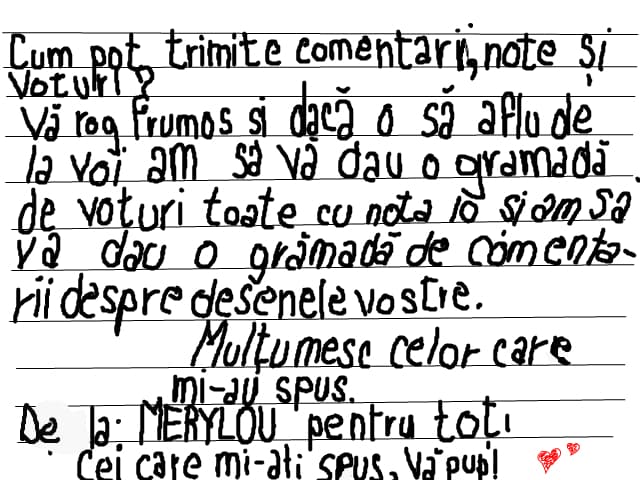 Cum pot trimite comentarii, note și
voturi?
Vă rog frumos si dacă o să aflu de
la voi am să vă dau o grămadă
de voturi toate cu nota 10 si am sa
vă dau o grămadă de comenta-
rii despre desenele vostre.
Mulțumesc celor care
mi-au spus.
De la: MERYLOU pentru toți
cei care mi-ati spus, Vă pup!